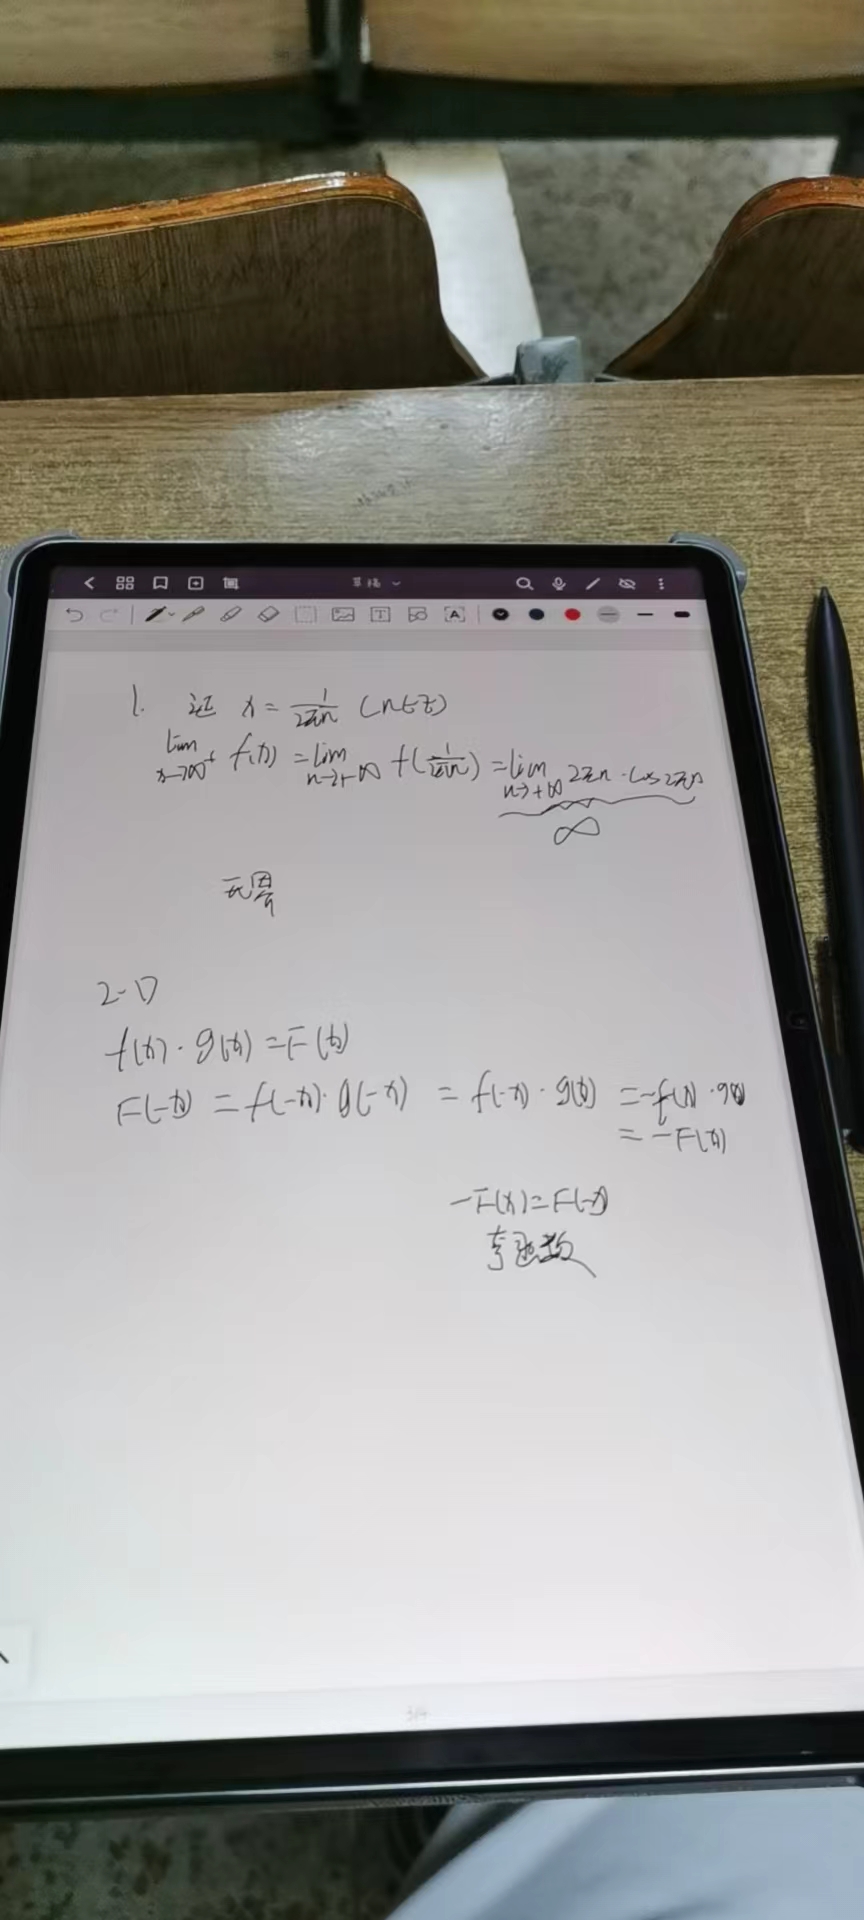 草稿
1. 证 x = 1/2πn (n∈z)
lim x→0⁺ f(x) = lim n→+∞ f(1/2πn) = lim n→+∞ 2πn · cos2πn
∞
无界
2-1)
f(x) · g(x) = F(x)
F(-x) = f(-x) · g(-x) = f(-x) · g(x) = -f(x) · g(x)
= -F(x)
-F(x) = F(-x)
奇函数